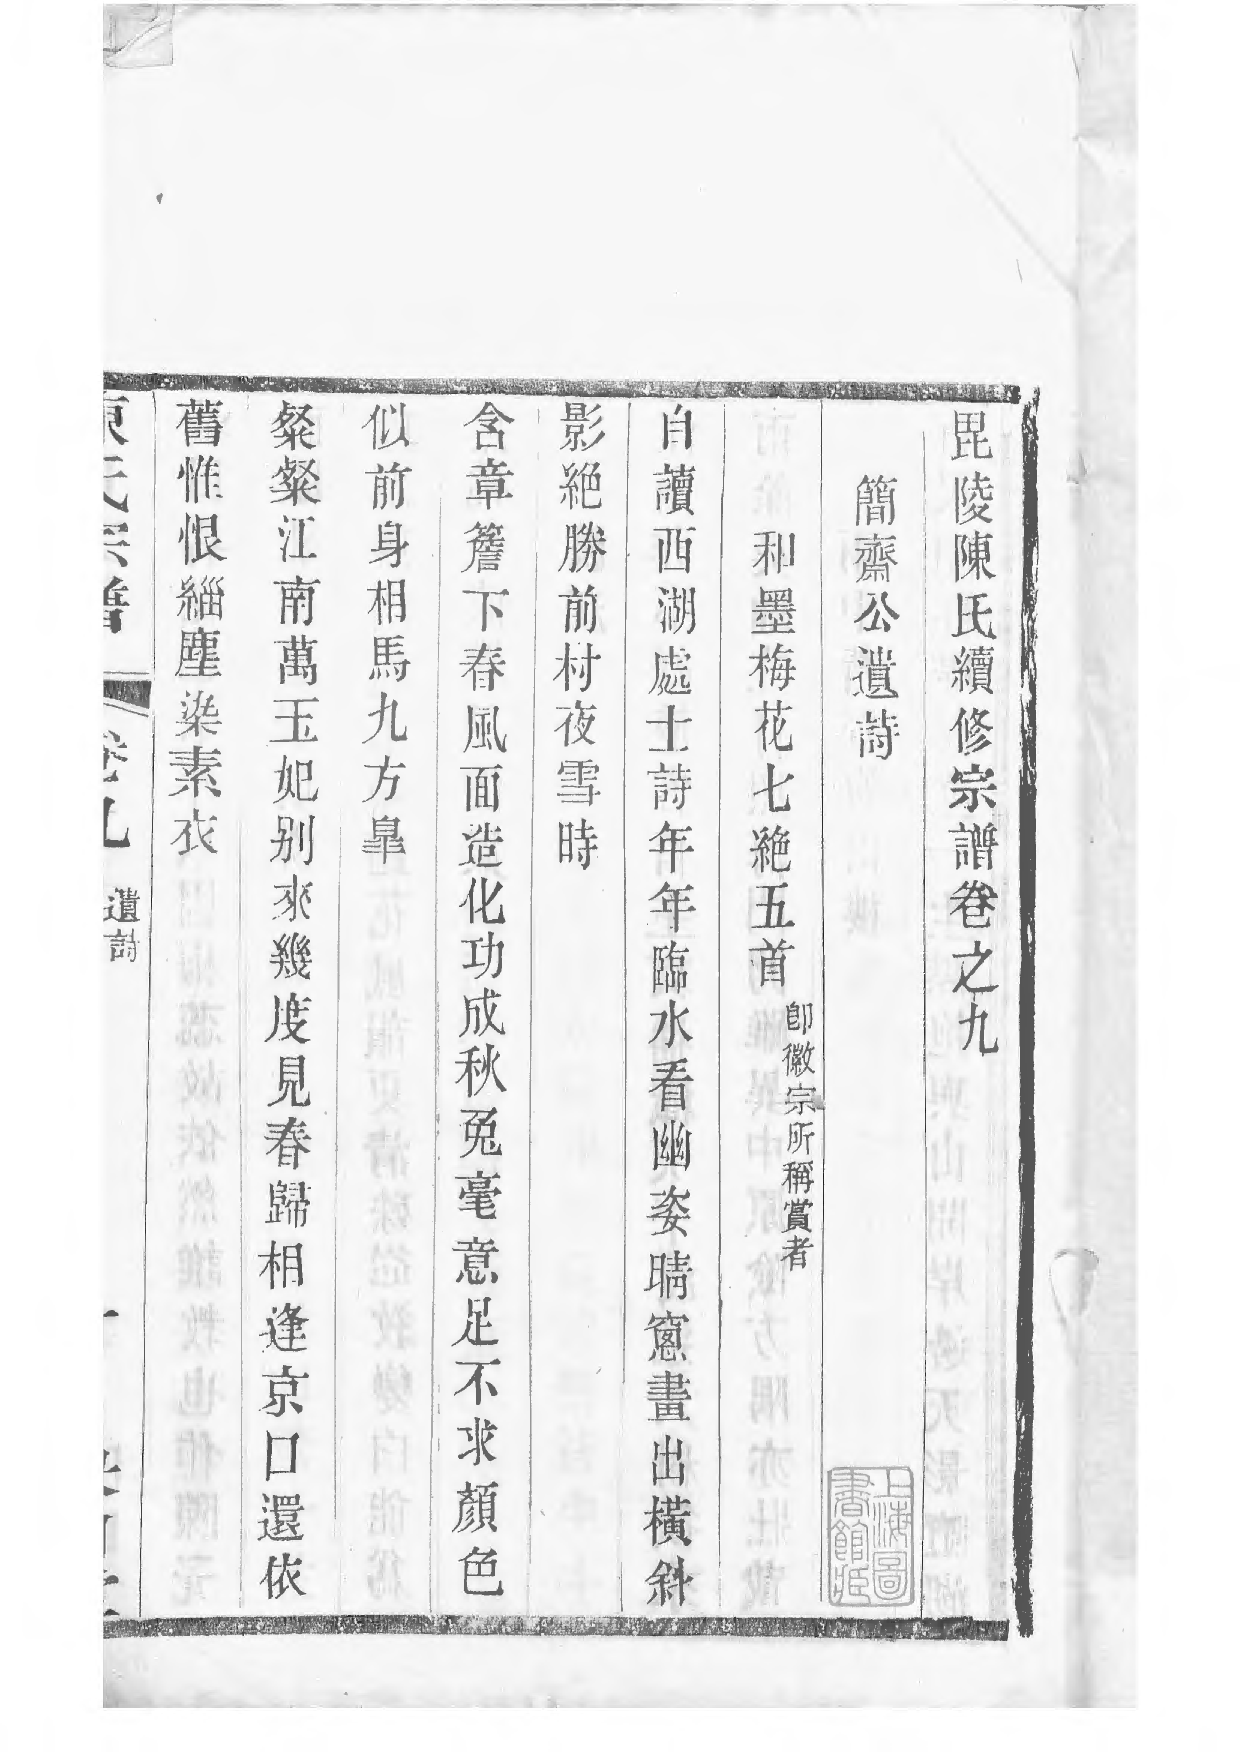 毘陵陳氏續修宗譜卷之九
簡齋公遺詩
和墨梅花七絶五首 卽徽宗所稱賞者
自讀西湖處士詩年年臨水看幽姿晴窻畫出橫斜
影絶勝前村夜雪時
含章簷下春風面造化功成秋兎毫意足不求顏色
似前身相馬九方皐
粲粲江南萬玉妃别來幾度見春歸相逢京口還依
舊惟恨緇塵染素衣
陳氏宗譜
卷九 遺詩
一
上海圖
書館藏